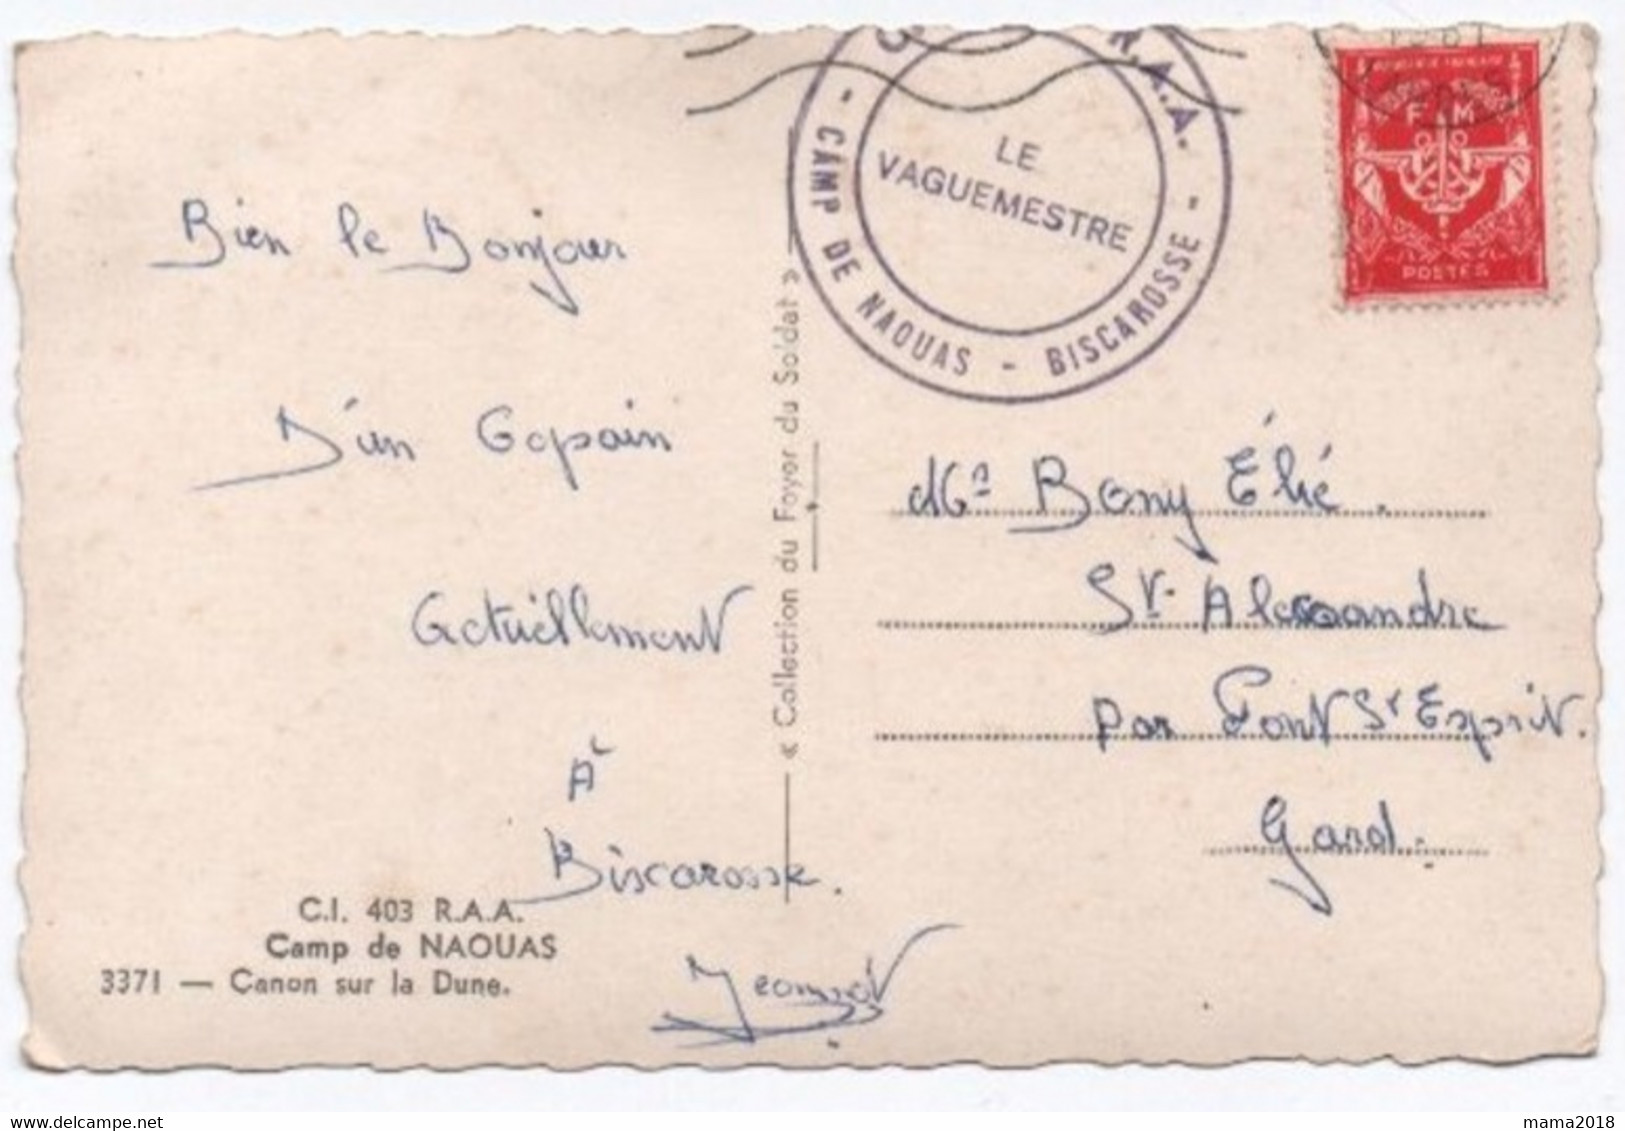 Bien le Bonjour
D'un Copain
Actuellement
À
Biscarosse.
C.I. 403 R.A.A.
Camp de NAOUAS
3371 — Canon sur la Dune.
« Collection du Foyer du Soldat »
R.A.A.
- CAMP DE NAOUAS - BISCAROSSE -
LE
VAGUEMESTRE
F M
POSTES
Mr Bony Élie.
St Alexandre
par Pont St Esprit.
Gard.
delcampe.net
mama2018